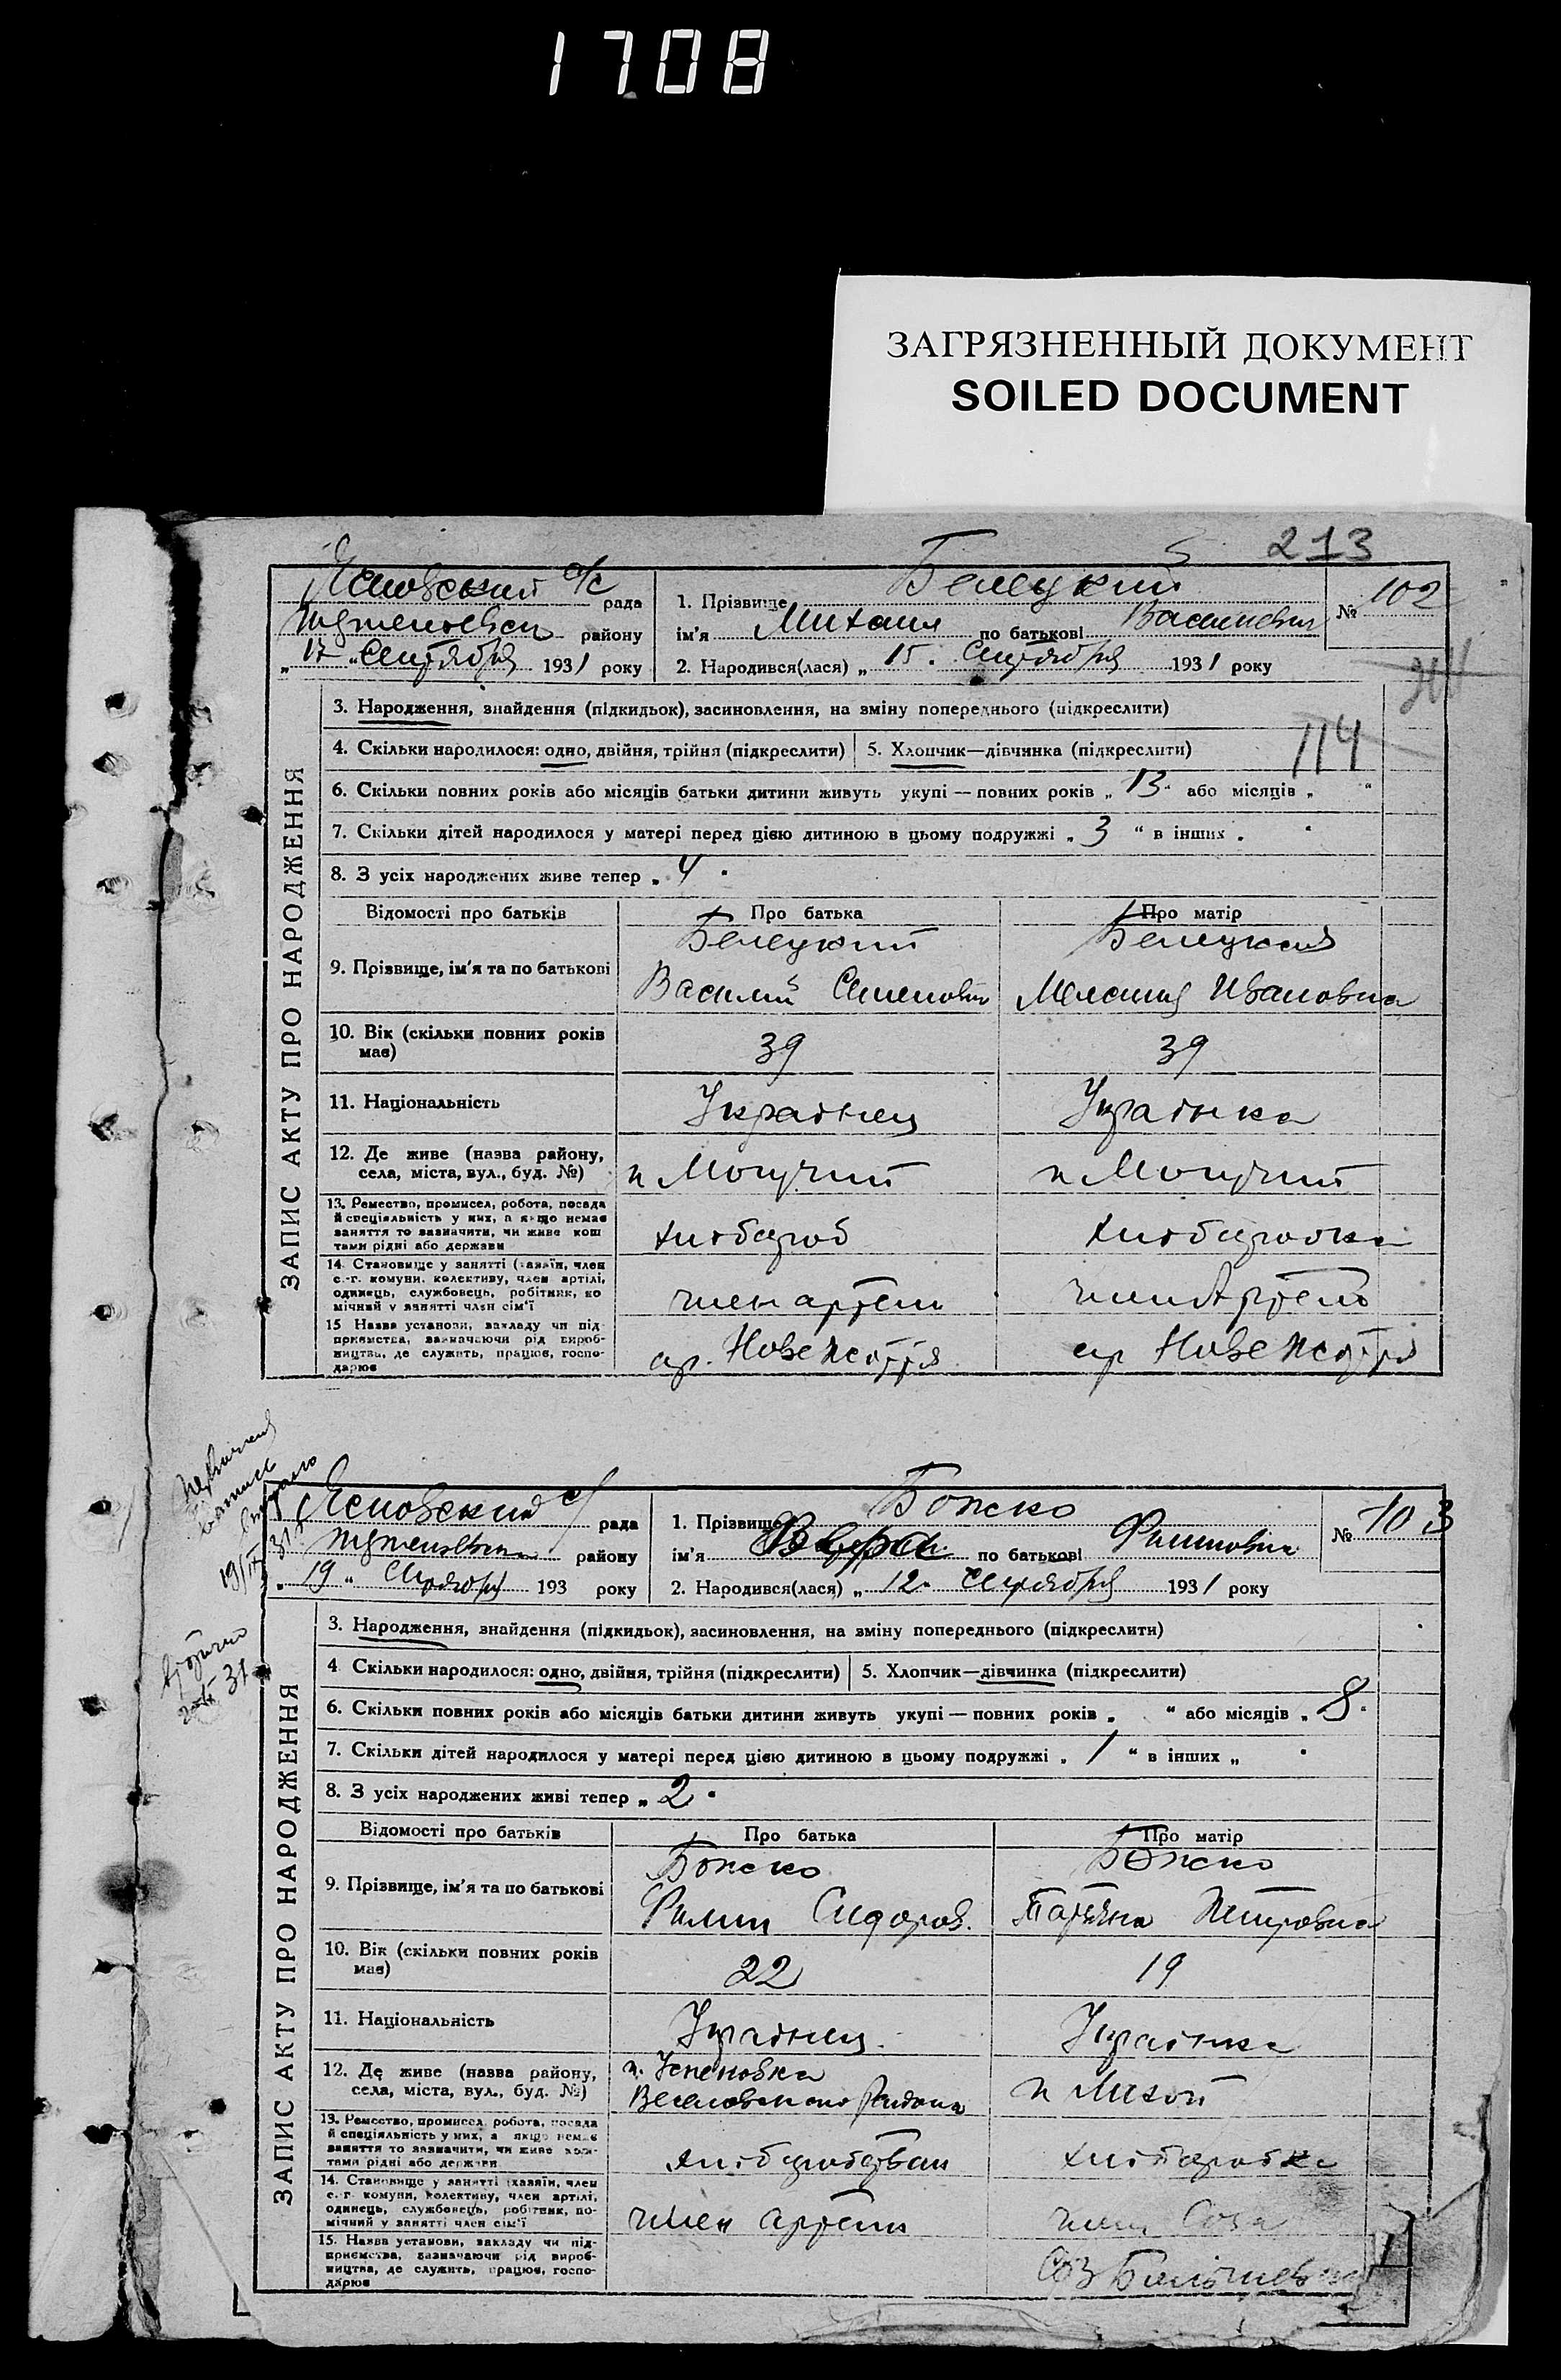 1708
ЗАГРЯЗНЕННЫЙ ДОКУМЕНТ
SOILED DOCUMENT
213
ЗАПИС АКТУ ПРО НАРОДЖЕННЯ
Ясновский с/с рада
району
„17“ Сентября 1931 року
1. Прізвище Белецкий
ім'я Михаил по батькові Васильевич
2. Народився(лася) „15“ Сентября 1931 року
№ 102
3. Народження, знайдення (підкидьок), засиновлення, на зміну попереднього (підкреслити)
4. Скільки народилося: одно, двійня, трійня (підкреслити) 5. Хлопчик—дівчинка (підкреслити)
114
6. Скільки повних років або місяців батьки дитини живуть укупі — повних років „13“ або місяців „ “
7. Скільки дітей народилося у матері перед цією дитиною в цьому подружжі „3“ в інших „ “
8. З усіх народжених живе тепер „4“
Відомості про батьків Про батька Про матір
9. Прізвище, ім'я та по батькові
Белецкий Белецкая
Василий Семенович Мелания Ивановна
10. Вік (скільки повних років має) 39 39
11. Національність Украінец Украінка
12. Де живе (назва району, села, міста, вул., буд. №)
13. Ремество, промисел, робота, посада
й спеціяльність у них, а якщо немає
заняття то зазначити, чи живе кош
тами рідні або держави
хлібороб хліборобка
14. Становище у занятті (хазяїн, член
с.-г. комуни, колективу, член артілі,
одинець, службовець, робітник, по
мічний у занятті член сім'ї
член артели член Артели
15 Назва установи, закладу чи під-
приємства, зазначаючи рід вироб-
ництва, де служить, працює, госпо-
дарює
ар. Нове Життя ар Нове Життя
ЗАПИС АКТУ ПРО НАРОДЖЕННЯ
Ясновский с/ рада
району
„19“ Сентября 193 року
1. Прізвище Божко
ім'я Вера по батькові Филиповна
2. Народився(лася) „12“ Сентября 1931 року
№ 103
3. Народження, знайдення (підкидьок), засиновлення, на зміну попереднього (підкреслити)
4 Скільки народилося: одно, двійня, трійня (підкреслити) 5. Хлопчик—дівчинка (підкреслити)
6. Скільки повних років або місяців батьки дитини живуть укупі — повних років „ “ або місяців „8“
7. Скільки дітей народилося у матері перед цією дитиною в цьому подружжі „1“ в інших „ “
8. З усіх народжених живі тепер „2“
Відомості про батьків Про батька Про матір
9. Прізвище, ім'я та по батькові
Божко Божко
Филип Сидоров. Татьяна Петровна
10. Вік (скільки повних років має) 22 19
11. Національність Украінец Украінка
12. Де живе (назва району, села, міста, вул., буд. №)
п. Успеновка
Веселовского Района
13. Ремество, промисел, робота, посада
й спеціяльність у них, а якщо немає
заняття то зазначити, чи живе кош-
тами рідні або держави
хліборобка
14. Становище у занятті (хазяїн, член
с.-г. комуни, колективу, член артілі,
одинець, службовець, робітник, по-
мічний у занятті член сім'ї
член артели член Соза
15. Назва установи, закладу чи під-
приємства, зазначаючи рід вироб-
ництва, де служить, працює, госпо-
дарює
СОЗ